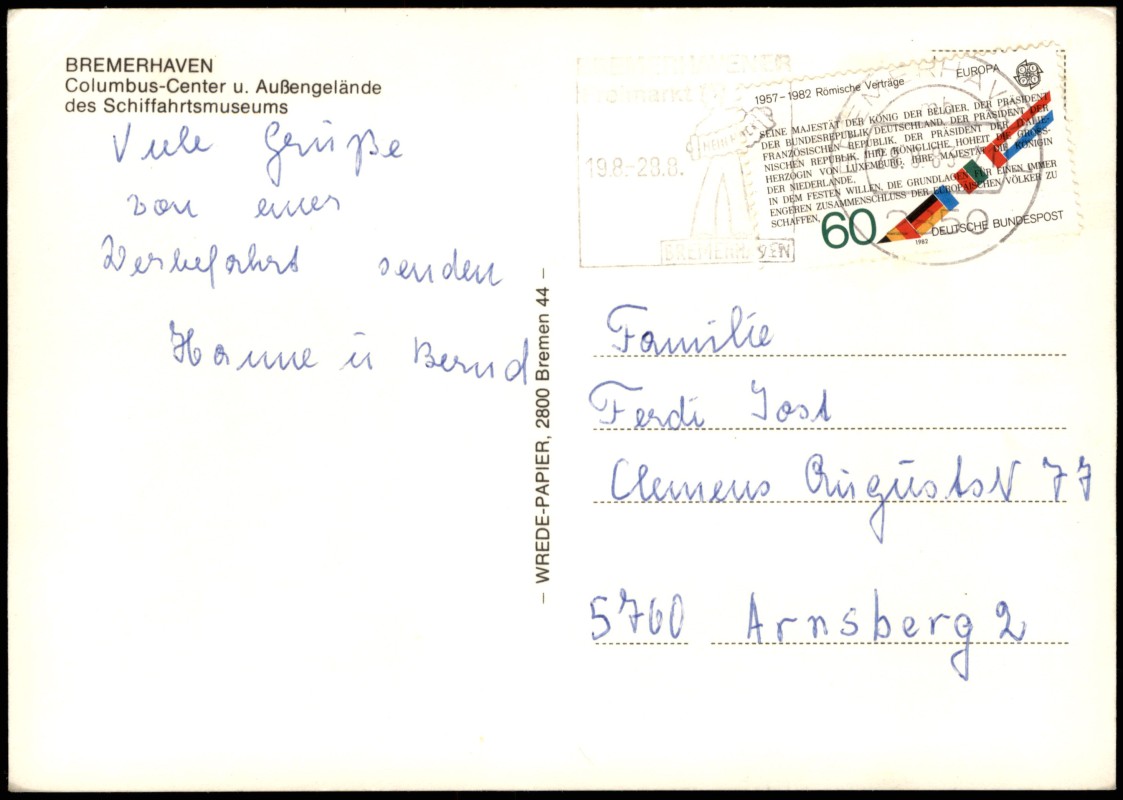 BREMERHAVEN
Columbus-Center u. Außengelände
des Schiffahrtsmuseums
Viele Grüße
von einer
Werbefahrt senden
Hanne u Bernd
– WREDE-PAPIER, 2800 Bremen 44 –
BREMERHAVENER
19.8.-28.8.
BREMERHAVEN
1957–1982 Römische Verträge
EUROPA
SEINE MAJESTÄT DER KÖNIG DER BELGIER, DER PRÄSIDENT
DER BUNDESREPUBLIK DEUTSCHLAND, DER PRÄSIDENT DER
FRANZÖSISCHEN REPUBLIK, DER PRÄSIDENT DER ITALIE-
NISCHEN REPUBLIK, IHRE KÖNIGLICHE HOHEIT DIE GROSS-
HERZOGIN VON LUXEMBURG, IHRE MAJESTÄT DIE KÖNIGIN
DER NIEDERLANDE,
IN DEM FESTEN WILLEN, DIE GRUNDLAGEN FÜR EINEN IMMER
ENGEREN ZUSAMMENSCHLUSS DER EUROPÄISCHEN VÖLKER ZU
SCHAFFEN,
60
1982
DEUTSCHE BUNDESPOST
Familie
Ferdi Jost
Clemens Auguststr 77
5760 Arnsberg 2